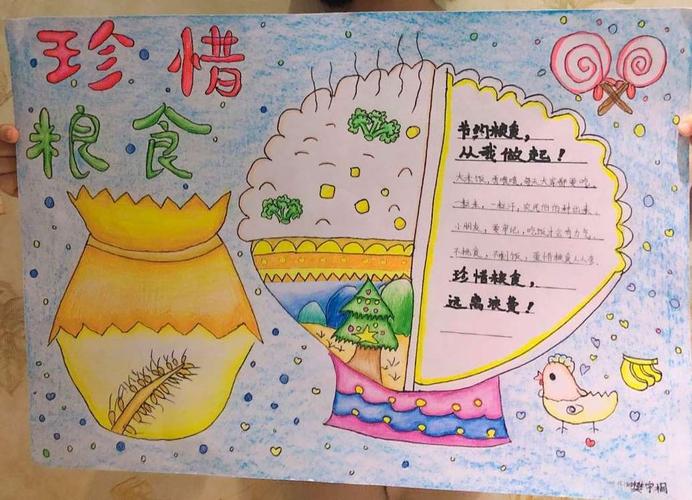 珍惜
粮食
节约粮食，
从我做起！
大米饭，香喷喷，每天大家都要吃。
一粒米，一粒汗，农民伯伯种出来。
小朋友，要牢记，吃饭才会有力气。
不挑食，不剩饭，爱惜粮食人人夸。
珍惜粮食，
远离浪费！